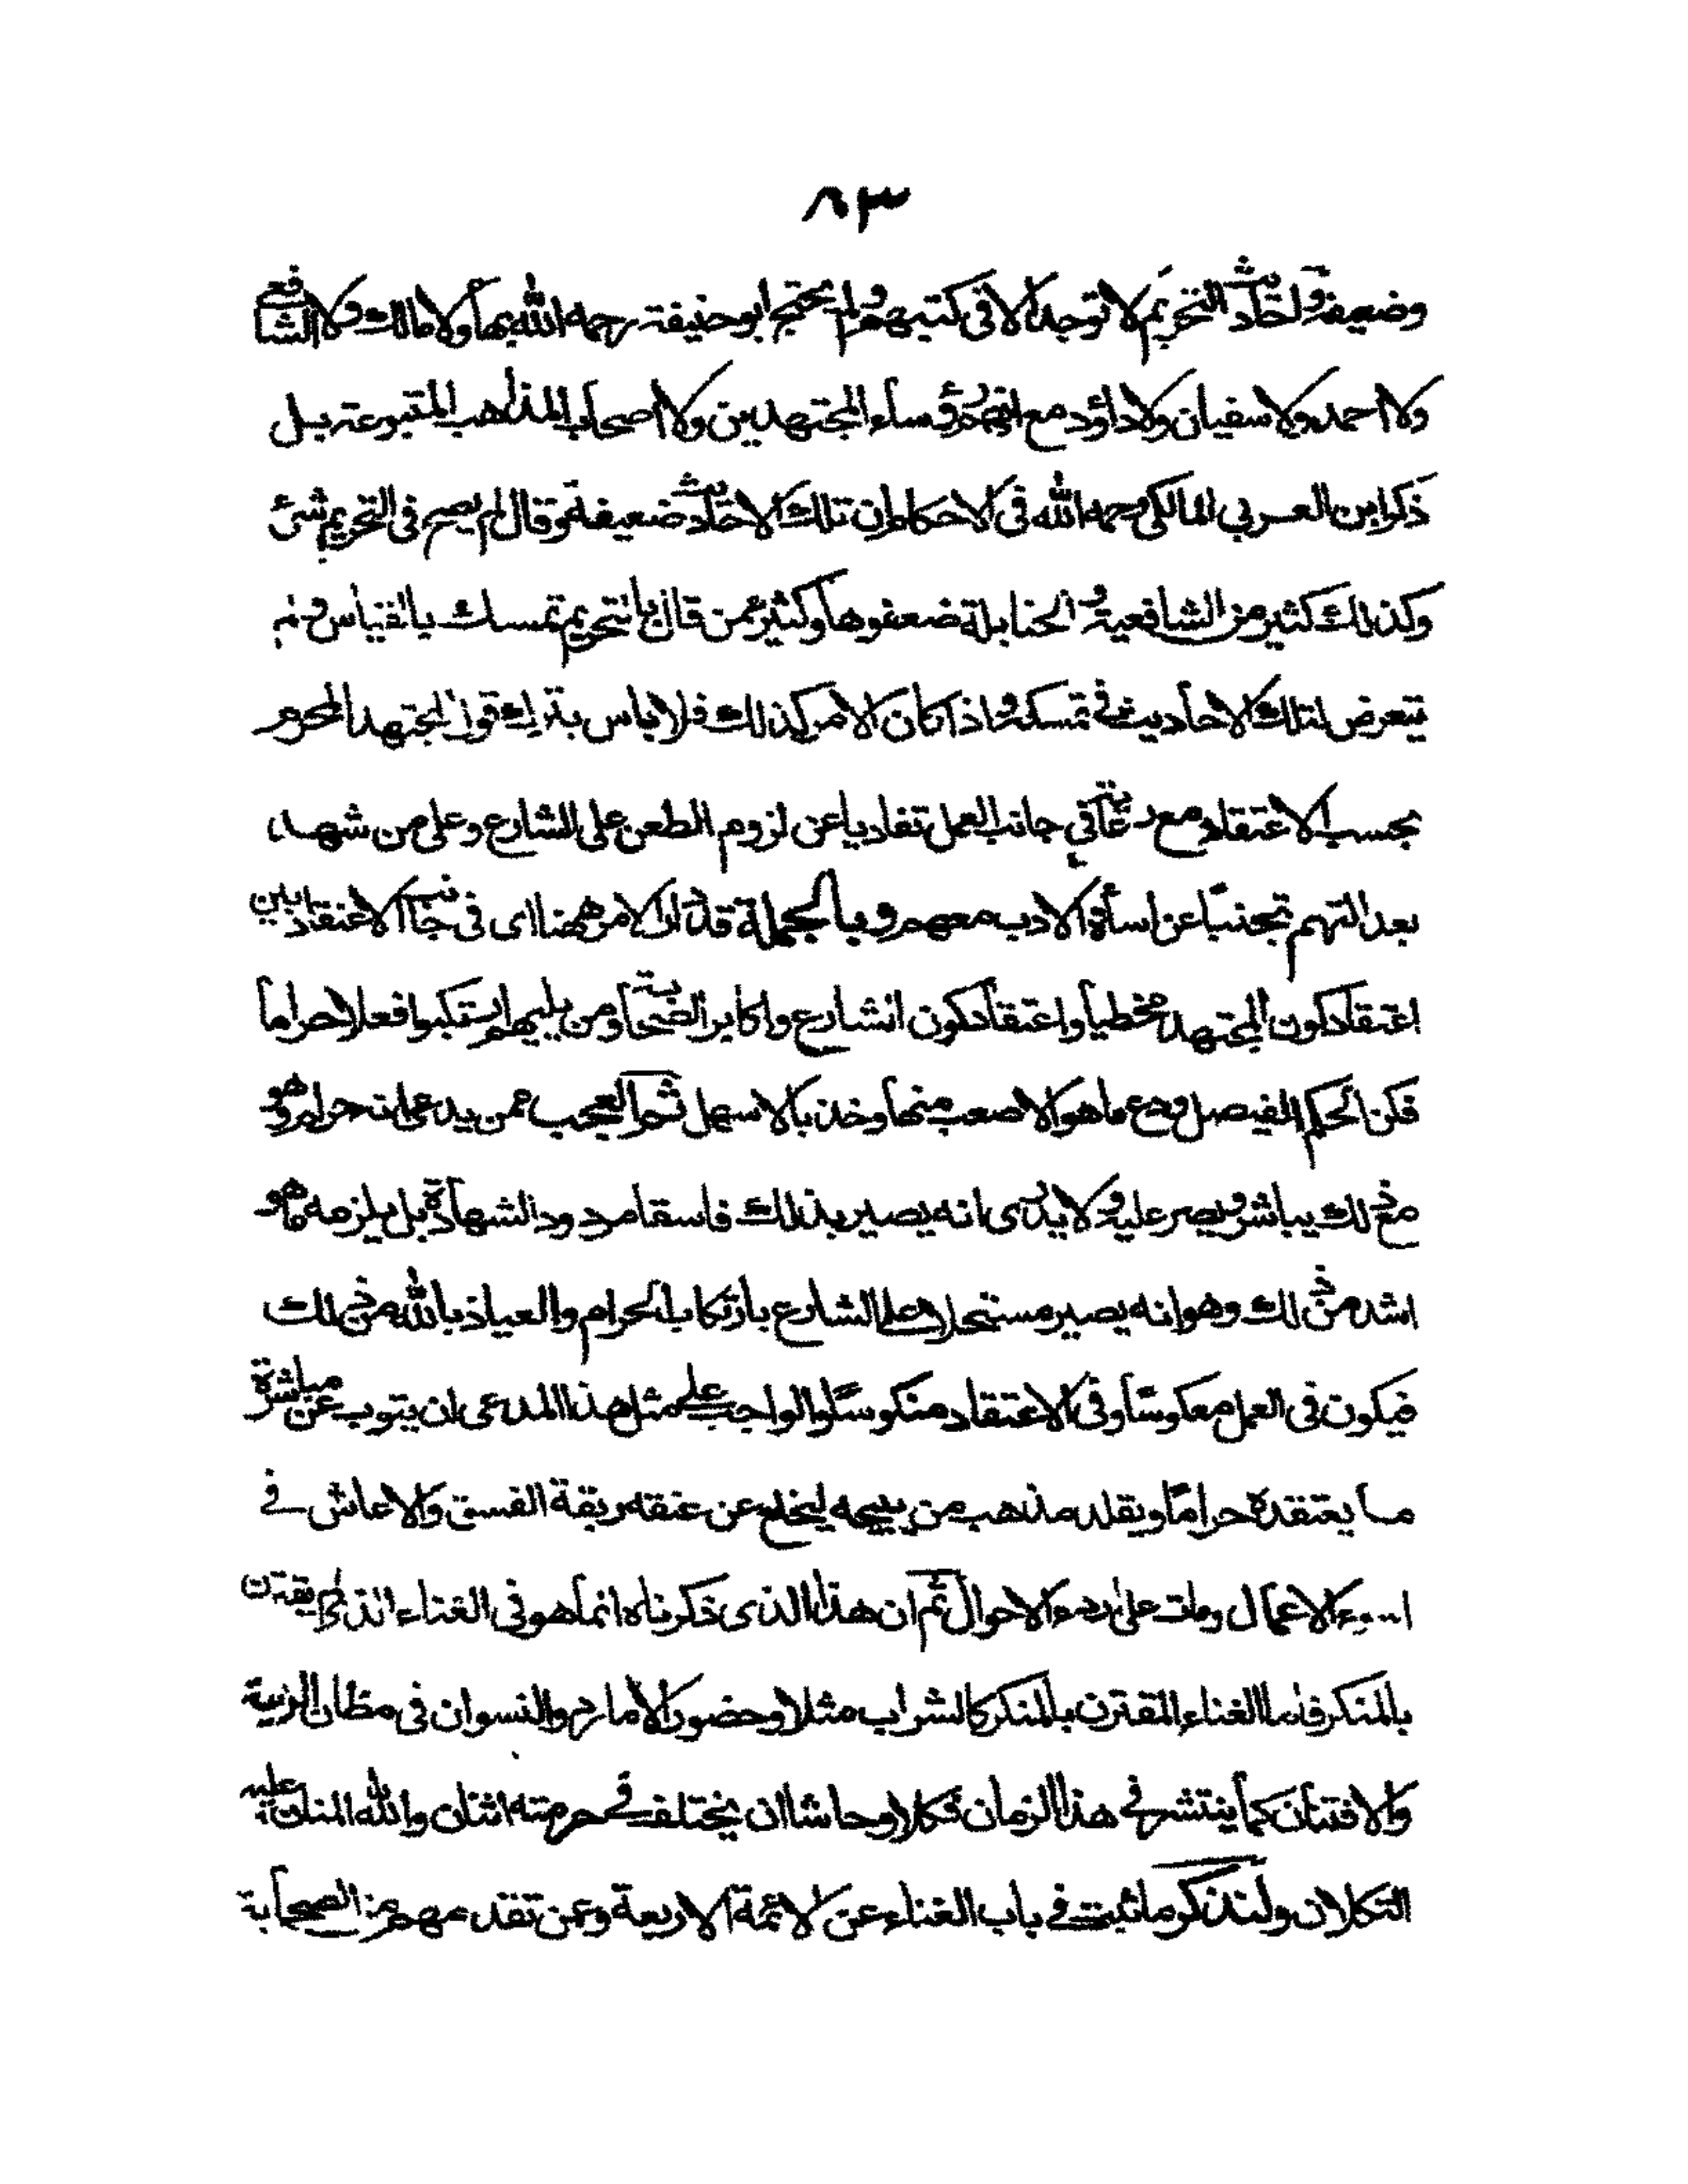 ٨٣
وضعيفة واحاديث التحريم لا توجد الا فى كتبهم ولم يحتج ابو حنيفة رحمه الله بها ولا مالك ولا الشافعى
ولا احمد ولا سفيان ولا داؤد مع انهم رؤساء المجتهدين ولا اصحاب المذاهب المتبوعة بل
ذكر ابن العربى المالكى رحمه الله فى الاحكام ان تلك الاحاديث ضعيفة وقال لم يصح فى التحريم شئ
وكذلك كثير من الشافعية والحنابلة ضعفوها وكثير ممن قال بالتحريم تمسك بالقياس ولم
يتعرض لتلك الاحاديث فى تمسكه واذا كان الامر كذلك فلا باس بترك قول المجتهد المحرم
بحسب الاعتقاد مع فى جانب العمل تفاديا عن لزوم الطعن على الشارع وعلى من شهد
بعدالتهم تجنبًا عن اسأة الادب معهم وبالجملة قد دار الامر ههنا اى فى جانب الاعتقاد بين
اعتقاد كون المجتهد مخطيا واعتقاد كون الشارع واكابر الصحابة ومن يليهم ارتكبوا فعلا حراما
فكن الحكم الفيصل ودع ما هو الاصعب منها وخذ بالاسهل ثم العجب ممن يدعى انه حرام وهو
مع ذلك يباشره ويصر عليه ولا يدرى انه يصير بذلك فاسقا مردود الشهادة بل يلزمه ما هو
اشد من ذلك وهو انه يصير مستحلا على الشارع بارتكاب الحرام والعياذ بالله من ذلك
فيكون فى العمل معكوسًا وفى الاعتقاد منكوسًا والواجب على مثل هذا المدعى ان يتوب عن مباشرة
ما يعتقده حرامًا ويقلد مذهب من يبيحه ليخلع عن عنقه ربقة الفسق والا عاش فى
اسوء الاعمال ومات على ردء الاحوال ثم ان هذا الذى ذكرناه انما هو فى الغناء الذى لم يقترن
بالمنكر فاما الغناء المقترن بالمنكر كالشراب مثلا وحضور الامارد والنسوان فى مظان الريبة
والافتنان كما ينتشر فى هذا الزمان فكلا وحاشا ان يختلف فى حرمته اثنان والله المنان عليه
التكلان ولنذكر ما ثبت فى باب الغناء عن الائمة الاربعة وعمن تقدمهم من الصحابة